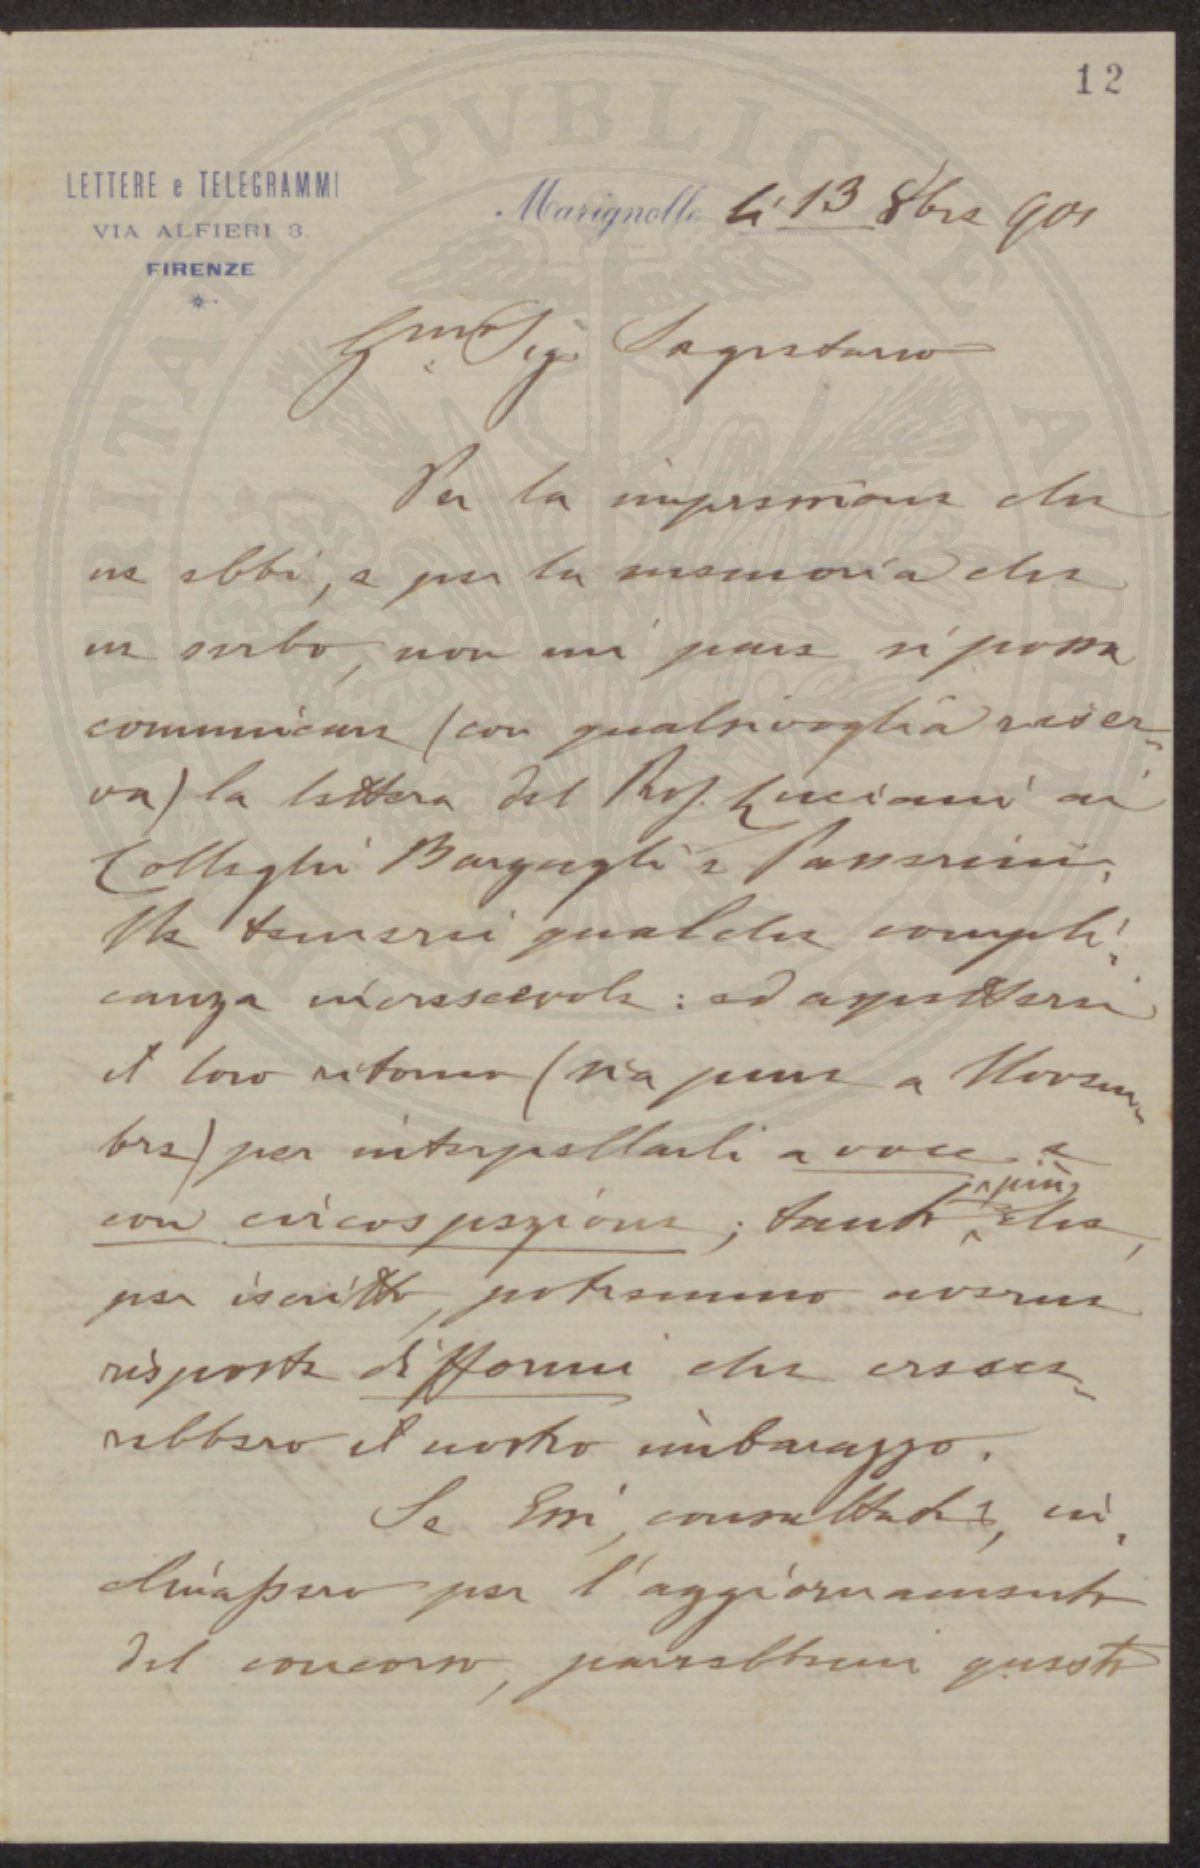 12
LETTERE e TELEGRAMMI
VIA ALFIERI 3.
FIRENZE
Marignolle li 13 8bre 901
Gmo Sigr Segretario
Per la impressione che
ne ebbi, e per la memoria che
ne serbo, non mi pare si possa
comunicare (con qualsivoglia riser-
va) la lettera del Prof. Luciani ai
Colleghi Bargagli e Passerini.
Me temerei qualche compli-
canza increscevole: ed aspetterei
il loro ritorno (sia pure a Novem-
bre) per interpellarli a voce e
con circospezione; tanto più che,
per iscritto, potremmo averne
risposte difformi che cresce-
rebbero il nostro imbarazzo.
Se Essi, consultati, in-
chinassero per l'aggiornamento
del concorso, parrebbemi questo
PVBLICAE